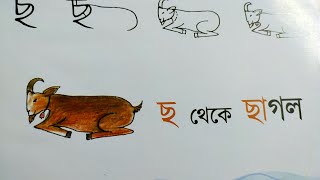 ছ ছ
ছ থেকে ছাগল